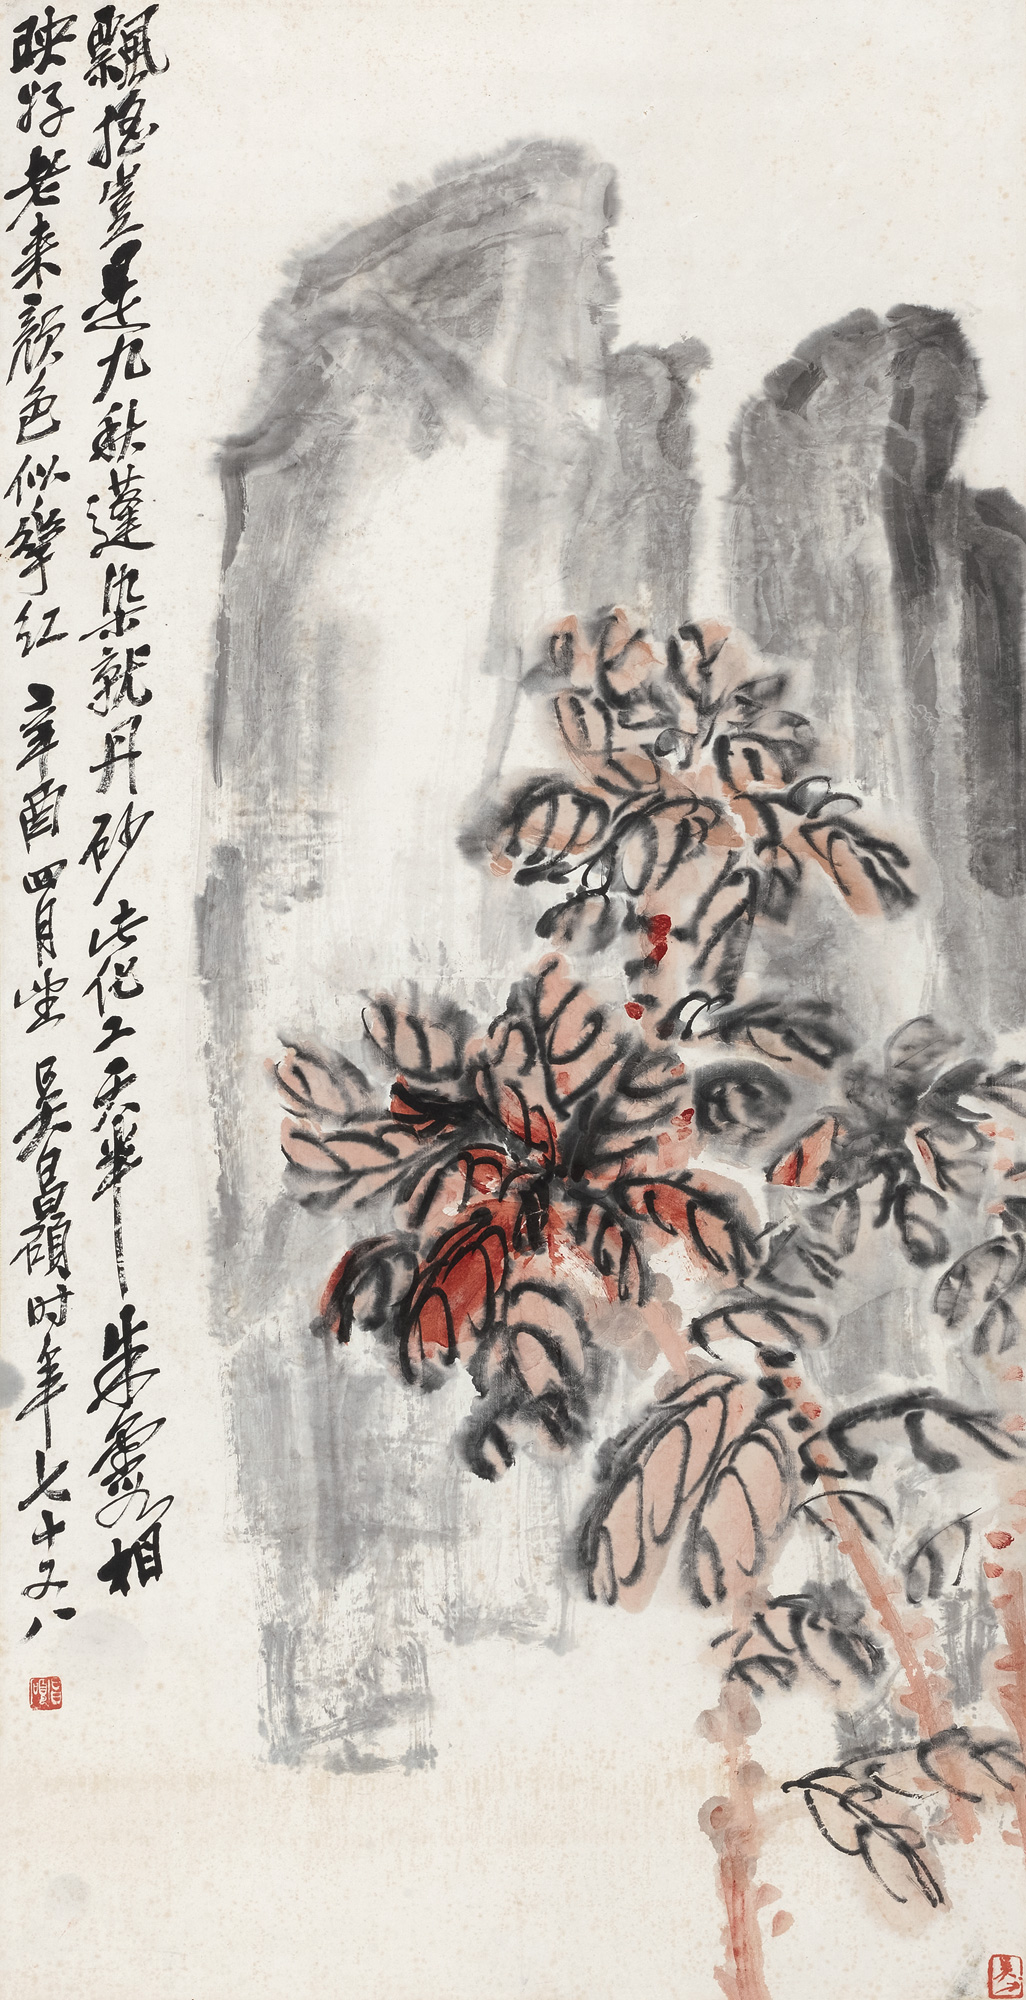 飄搖豈是九秋蓬染就丹砂借化工天半朱霞相
映好老来顏色似華紅 辛酉四月望 吳昌碩時年七十又八